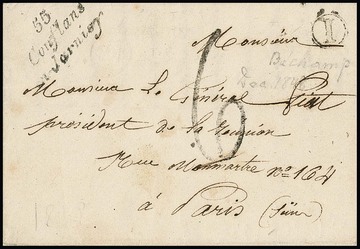 55
Conflans
en Jarnisy
I
Monsieur
Bechamp
Monsieur Le Général Piat
6
président de la réunion
Rue Monmartre nº 164
à Paris